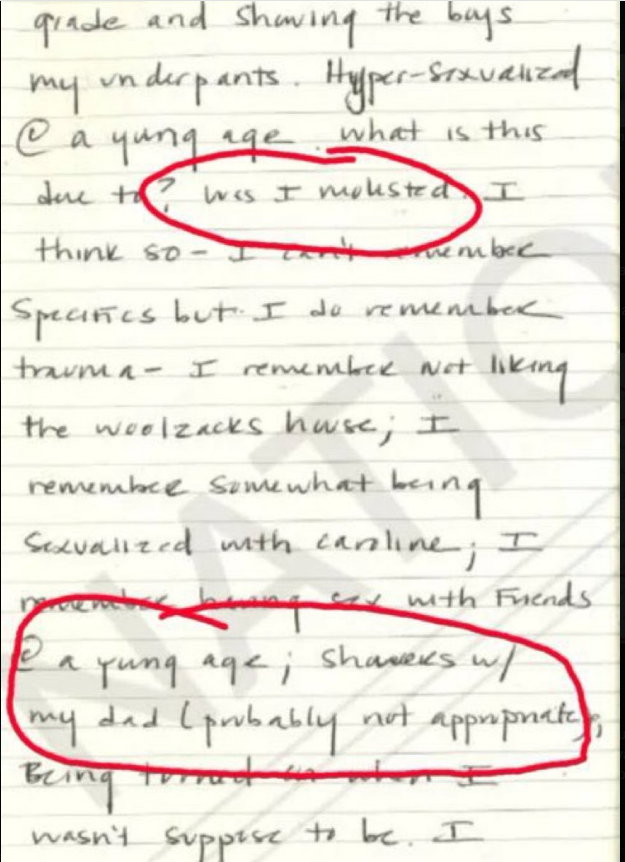 grade and showing the boys
my underpants. Hyper-sexualized
@ a yung age. what is this
due to? Was I molested. I
think so - I can't remember
specifics but I do remember
trauma - I remember not liking
the woolzacks house; I
remember somewhat being
sexualized with caroline; I
remember having sex with friends
@ a yung age; showers w/
my dad (probably not appropriate);
Being turned on when I
wasn't suppose to be. I
NATIO